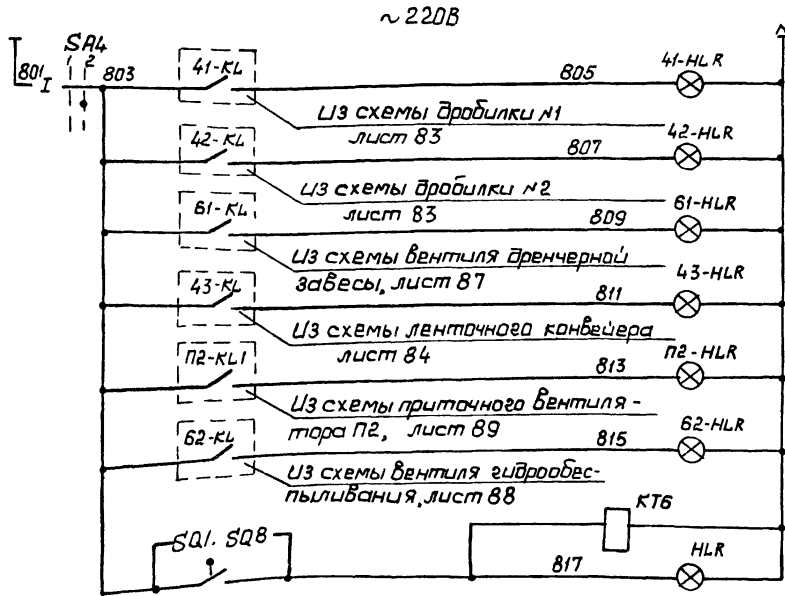 ~ 220В
SA4
1 2
801 I 803
41-KL 805 41-HLR
Из схемы дробилки N1
лист 83
42-KL 807 42-HLR
Из схемы дробилки N2
лист 83
61-KL 809 61-HLR
Из схемы вентиля дренчерной
завесы, лист 87
43-KL 811 43-HLR
Из схемы ленточного конвейера
лист 84
П2-KL1 813 П2-HLR
Из схемы приточного вентиля-
тора П2, лист 89
62-KL 815 62-HLR
Из схемы вентиля гидрообес-
пыливания, лист 88
KT6
SQ1. SQ8
817 HLR